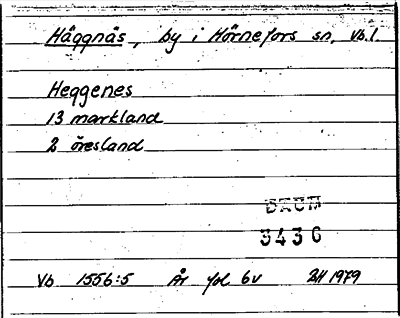 Häggnäs, by i Hörnefors sn, Vb.l.
Heggenes
13 markland
2 öresland
3436
Vb 1556:5 År fol 6v BH 1979